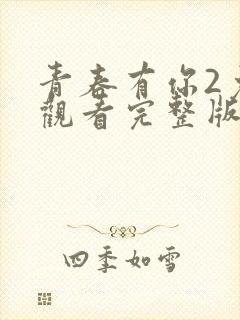 青春有你2
觀看完整版
四季如雪